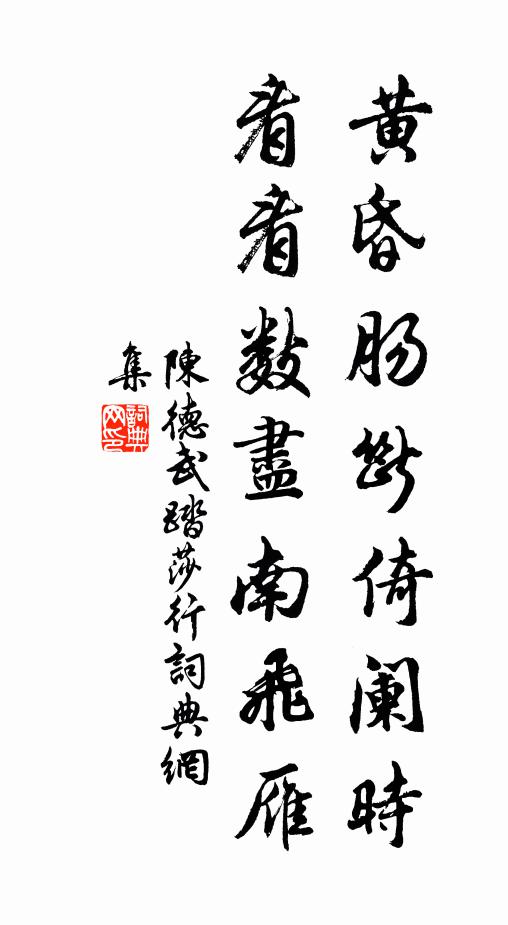 黃昏肠断倚阑時
看看數盡南飛雁
陳德武踏莎行詞典網
集
詞典网印